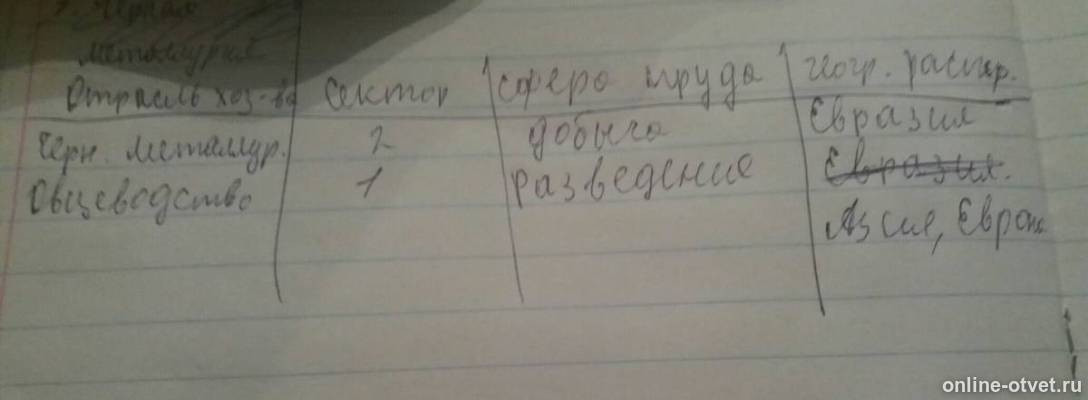 Черная
металлургия
Отрасль хоз-ва Сектор сфера труда геогр. распр.
Черн. металлур. 2 добыча Евразия
Овцеводство 1 разведение Евразия.
Азия, Европа
online-otvet.ru